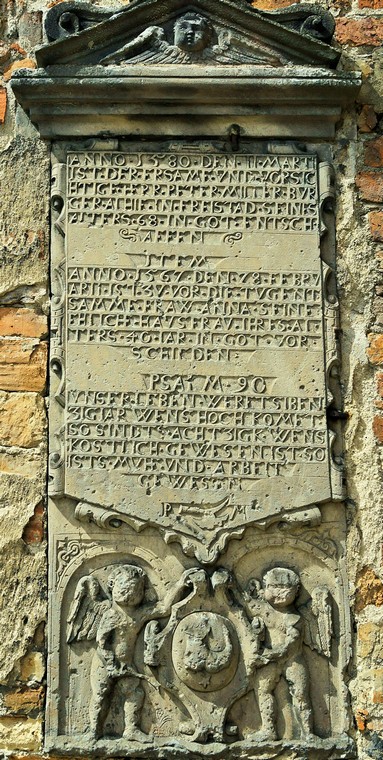 ANNO·1580·DEN·11·MARTI
IST·DER·ERSAME·VNN·VORSIC
HTIGE·HERR·PETER·
IN·FREISTAD·SEINES
ALTERS·68·IN·GOT·ENTSCH
LAFFEN
ITEM
ANNO·1567·DEN·28·FEBRV
ARII·IST·VOR·DIE·TVGENT
SAMME·FRAW·ANNA·SEINE
EHLICH·HAVSFRAV·IRES·AL
TERS·40·IAR·IN·GOT·VOR
SCHIDEN·
PSALM·90
VNSER·LEBEN·WERET·SIBEN
ZIG·IAR·WENS·HOCH·KOMET
SO·SINDTS·ACHTZIGK·WENS
KOSTLICH·GEWESEN·IST·SO
ISTS·MVHE·VND·ARBEIT
GEWESEN
P M